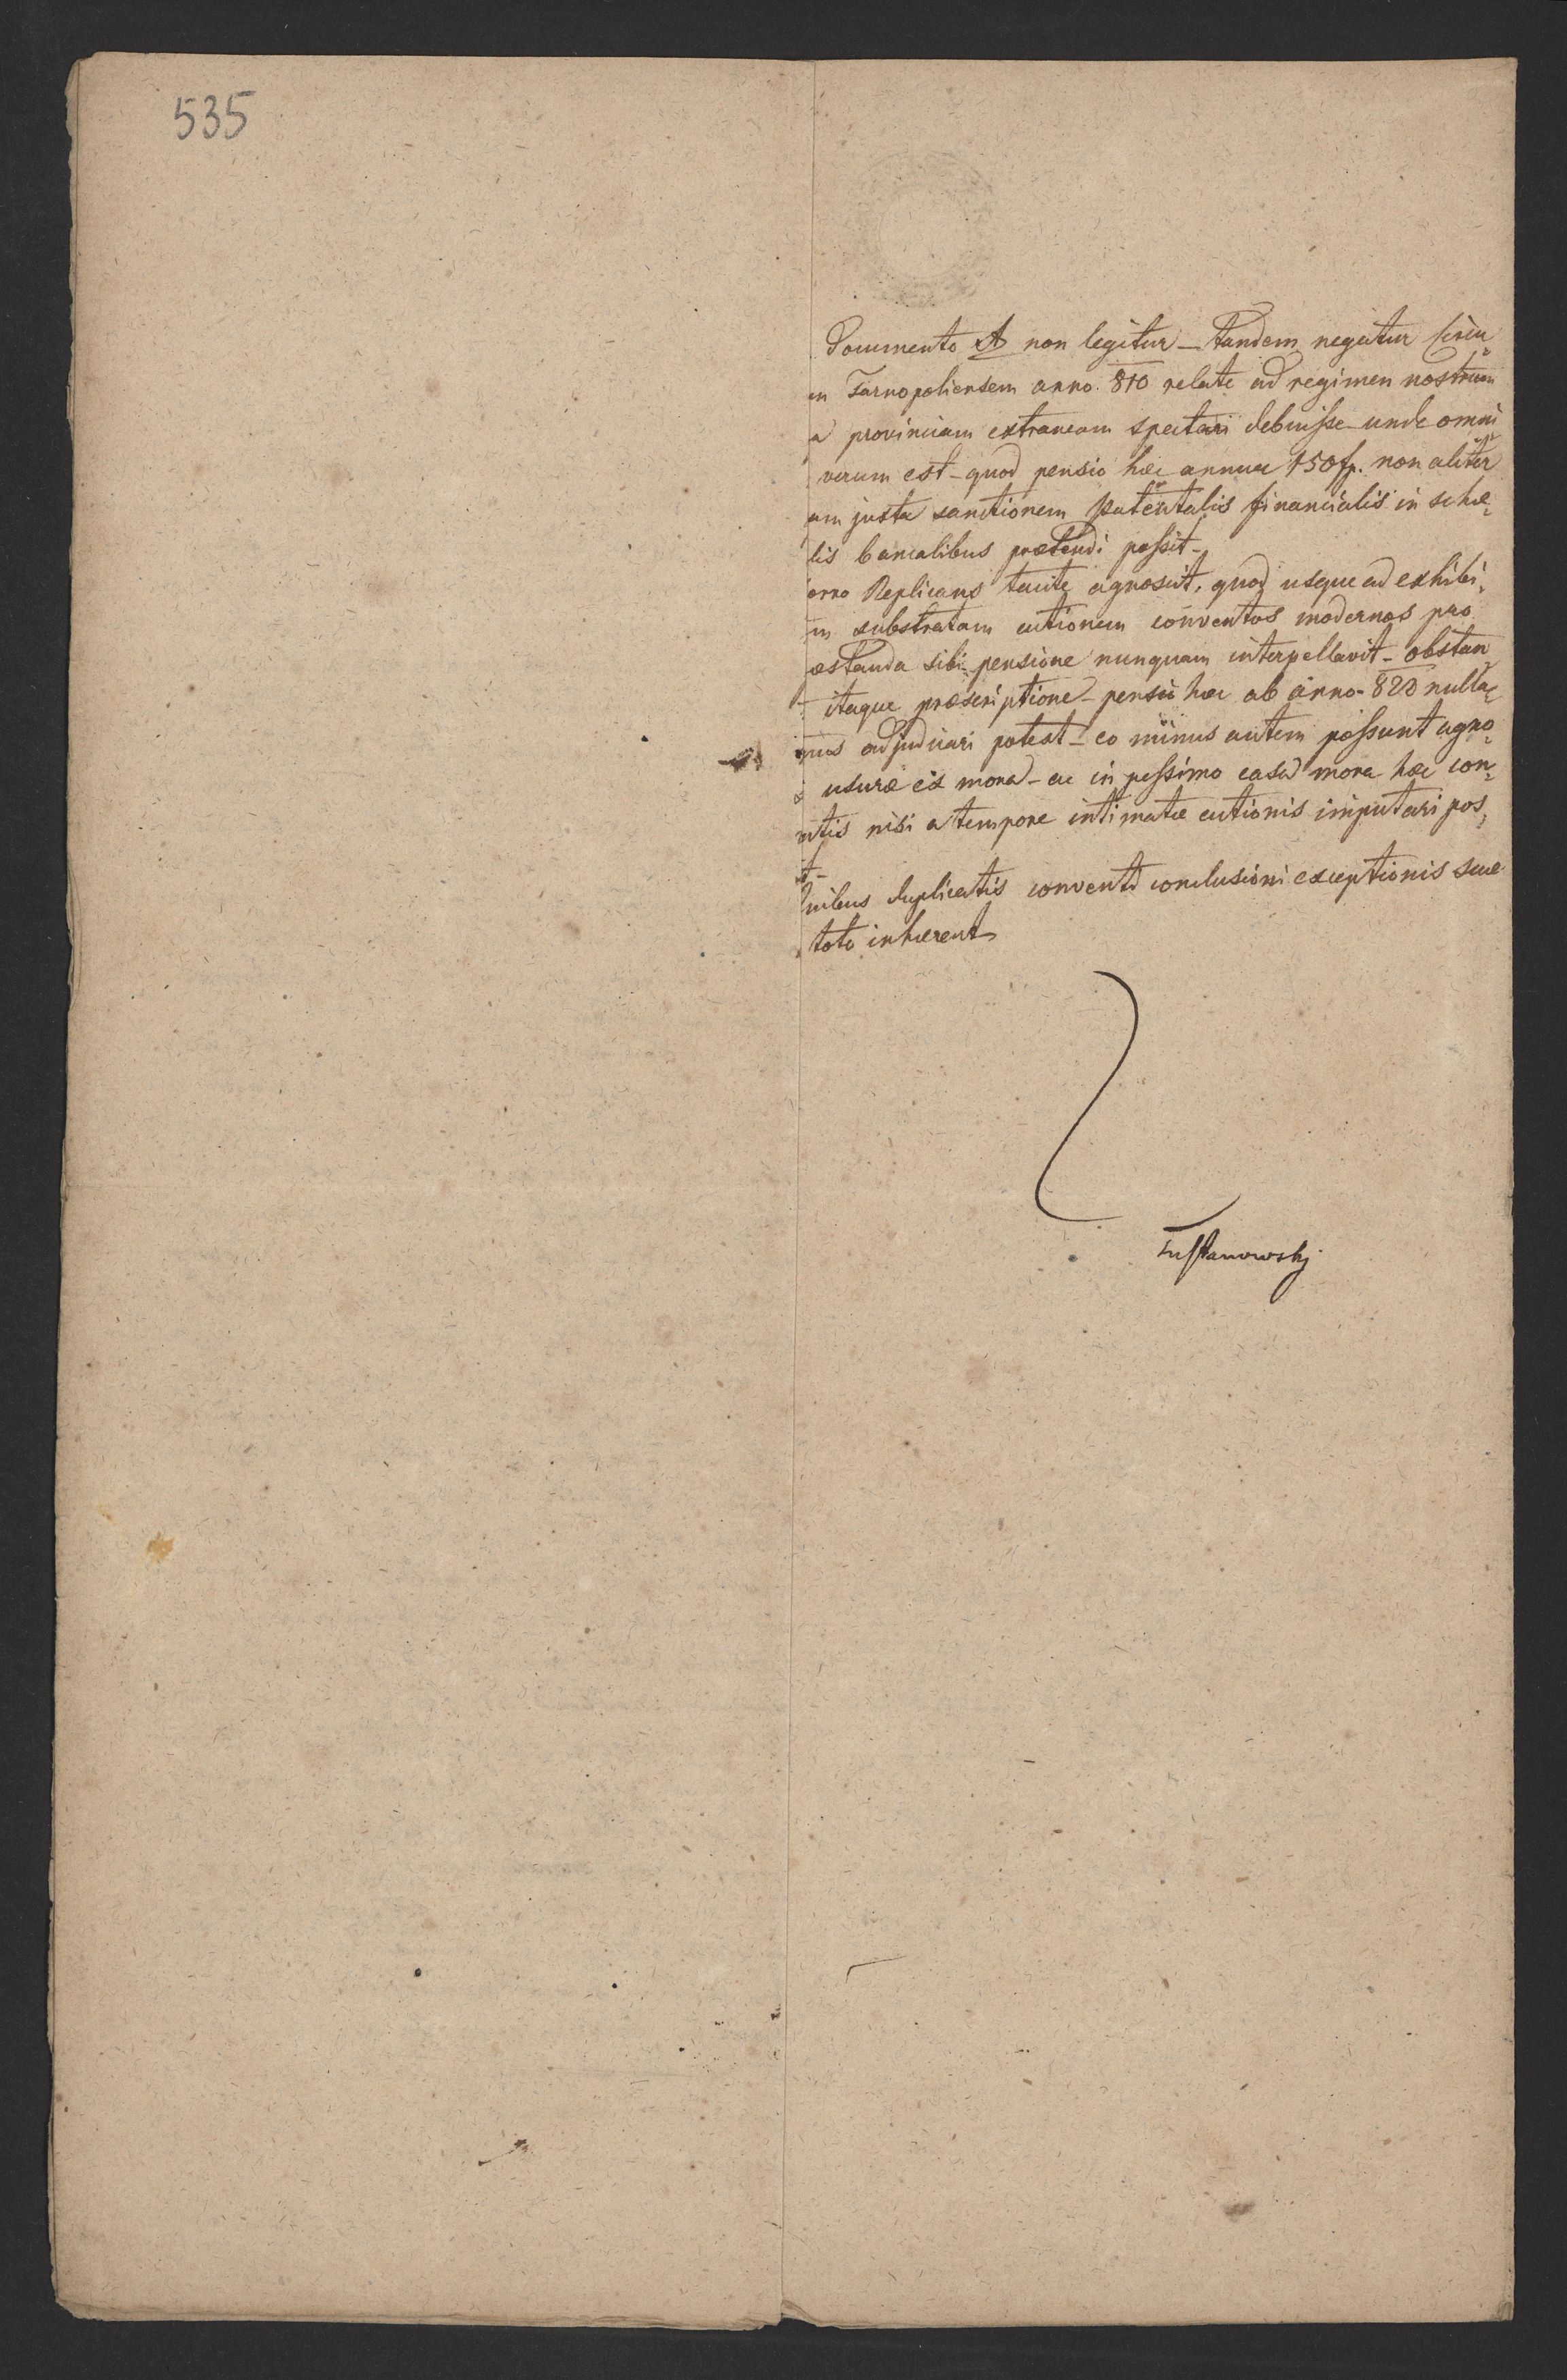 535
Documento A non legitur – Tandem negatur Circu„
m Tarnopoliensem anno 810 relate ad regimen nostrum
a provinciam extraneam spectari debuisse – unde omni
verum est – quod pensio hæc annua 150 fr. non aliter
am juxta sanctionem Patentalis financialis in sche„
lis bancalibus prætendi possit –
orro Replicans tacite agnoscit, quod usque ad exhibi„
m substratam actionem conventos modernos pro
æstanda sibi pensione nunquam interpellavit – obstan„
itaque præscriptione – pensio hæc ab anno 820 nulla„
nus adjudicari potest – eo minus autem possunt agno„
i usuræ ex mora – ac in pessimo casu mora hæc con„
ntis nisi a tempore intimatæ actionis imputari pos„
t –
Quibus duplicatis conventi conclusioni exceptionis suæ
toto inhærent
Tustanowsky